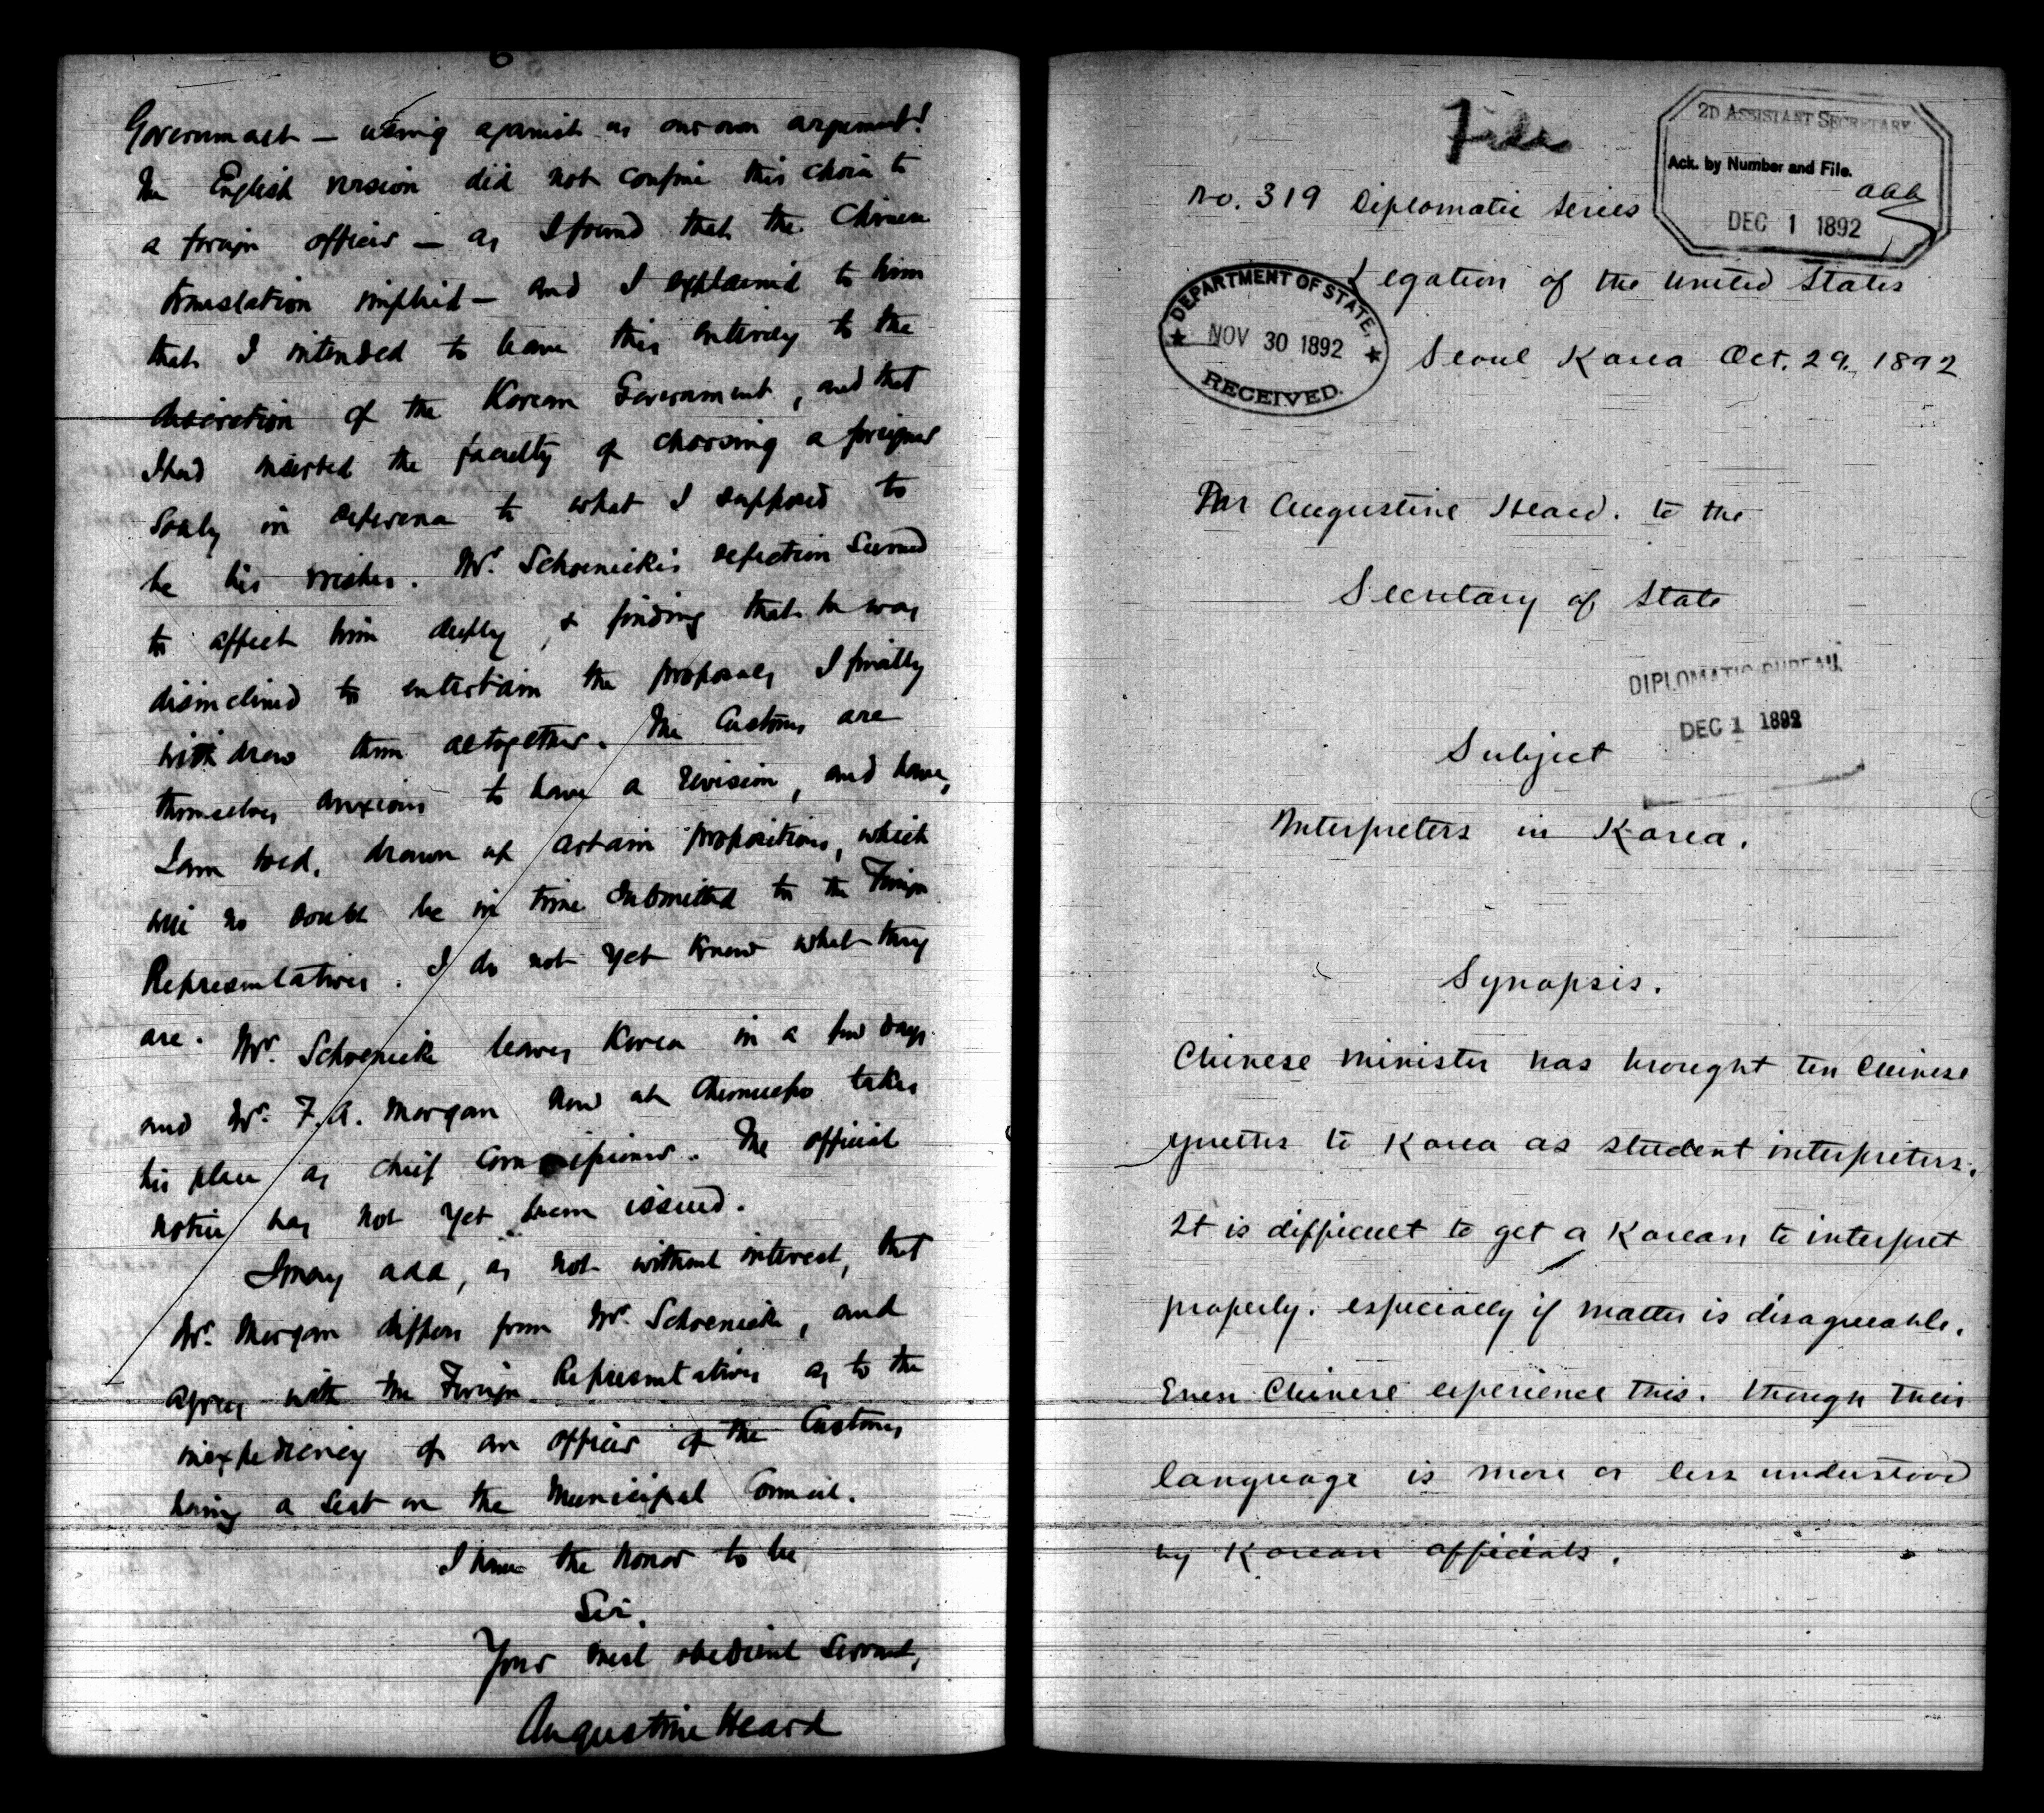 Government — using against us our own argument!
The English version did not confine this choice to
a foreign officer — as I found that the Chinese
translation implied — and I explained to him
that I intended to leave this entirely to the
discretion of the Korean Government, and that
I had inserted the faculty of choosing a foreigner
solely in deference to what I supposed to
be his wishes. Mr. Schoenicke's defection seemed
to affect him deeply, & finding that he was
disinclined to entertain the proposals, I finally
withdrew them altogether. The Customs are
themselves anxious to have a revision, and have,
I am told, drawn up certain propositions, which
will no doubt be in time submitted to the Foreign
Representatives. I do not yet know what they
are. Mr. Schoenicke leaves Korea in a few days
and Mr. F. A. Morgan now at Chemulpo takes
his place as chief Commissioner. The official
notice has not yet been issued.
I may add, as not without interest, that
Mr. Morgan differs from Mr. Schoenicke, and
agrees with the Foreign Representatives as to the
inexpediency of an officer of the Customs
having a seat on the Municipal Council.
I have the honor to be
Sir,
Your most obedient servant,
Augustine Heard
File
2D ASSISTANT SECRETARY
Ack. by Number and File.
aaa
DEC 1 1892
No. 319 Diplomatic Series
Legation of the United States
DEPARTMENT OF STATE,
NOV 30 1892
RECEIVED.
Seoul Korea Oct. 29, 1892
Mr Augustine Heard. to the
Secretary of State
DIPLOMATIC BUREAU.
DEC 1 1892
Subject
Interpreters in Korea.
Synopsis.
Chinese Minister has brought ten Chinese
youths to Korea as student interpreters.
It is difficult to get a Korean to interpret
properly. especially if matter is disagreeable.
Even Chinese experience this. though their
language is more or less understood
by Korean officials.